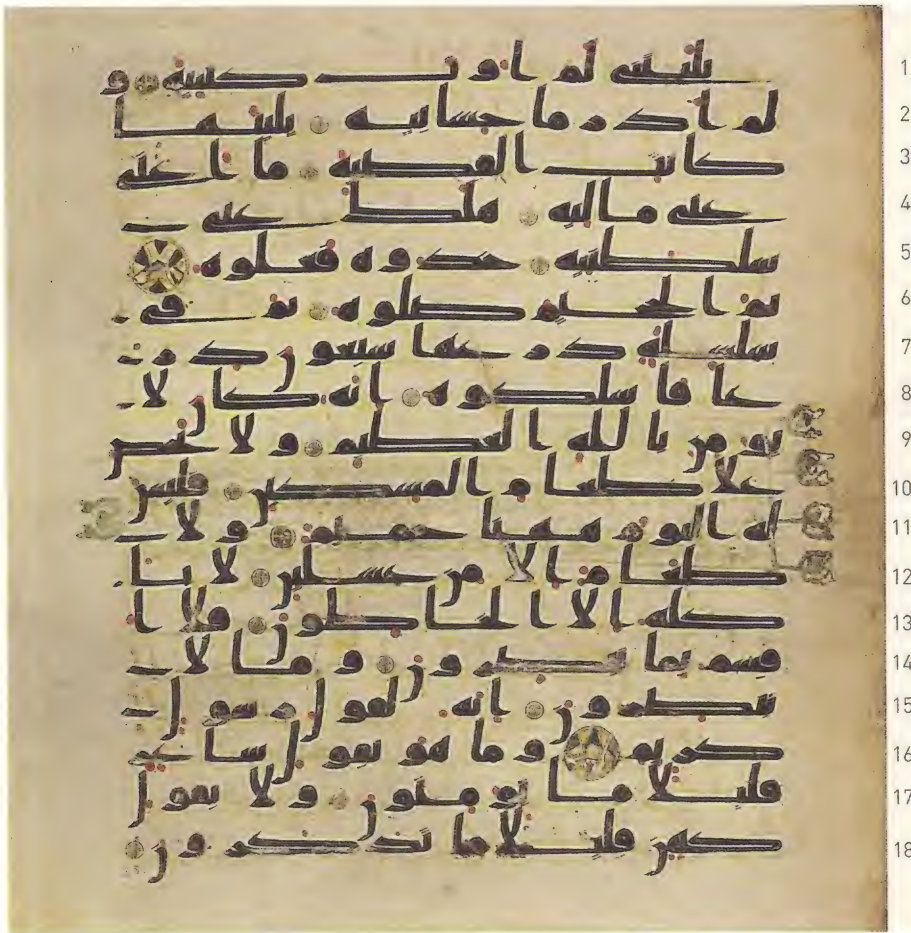 يليتني لم اوت كتبيه و 1
لم ادر ما حسابيه يليتها 2
كانت القضيه ما اغنى 3
عني ماليه هلك عني 4
سلطنيه خذوه فغلوه 5
ثم الجحيم صلوه ثم في 6
سلسله ذرعها سبعون ذر 7
عا فاسلكوه انه كان لا 8
يومن بالله العظيم ولا يحض 9
على طعام المسكين فليس 10
له اليوم ههنا حميم ولا 11
طعام الا من غسلين لا يا 12
كله الا الخاطون فلا ا 13
قسم بما تبصرون وما لا 14
تبصرون انه لقول رسول 15
كريم وما هو بقول شاعر 16
قليلا ما تومنون ولا بقول 17
كهن قليلا ما تذكرون 18